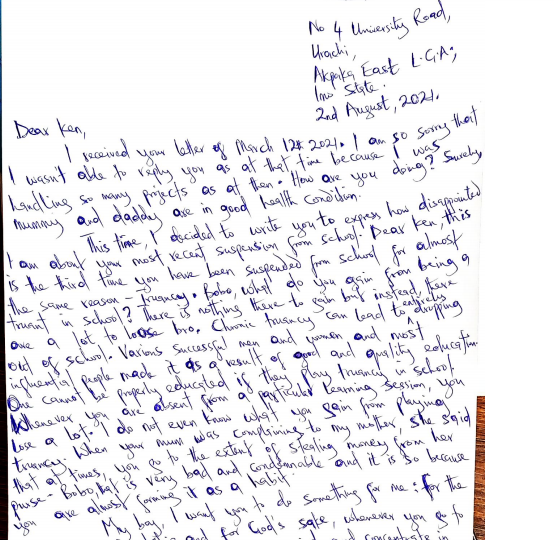 No 4 University Road,
Urachi,
Akpaka East L.G.A;
Imo State.
2nd August, 2021.
Dear Ken,
I received your letter of March 12th 2021. I am so sorry that
I wasn't able to reply you as at that time because I was
handling so many projects as at then. How are you doing? Surely,
mummy and daddy are in good health condition.
This time, I decided to write you to express how disappointed
I am about your most recent suspension from school. Dear Ken, this
is the third time you have been suspended from school for almost
the same reason - truancy. Bobo, what do you gain from being a
truant in school? There is nothing there to gain but instead, there
are a lot to loose bro. Chronic truancy can lead to entirely dropping
out of school. Various successful men and women and most
influential people made it as a result of good and quality education.
One cannot be properly educated if they play truancy in school
Whenever you are absent from a particular learning session, you
lose a lot. I do not even know what you gain from playing
truancy. When your mum was complaining to my mother, she said
that at times, you go to the extent of stealing money from her
purse - Bobo, that is very bad and condemnable and it is so because
you are almost forming it as a habit.
My boy, I want you to do something for me: for the
and for God's sake, whenever you go to
and concentrate in